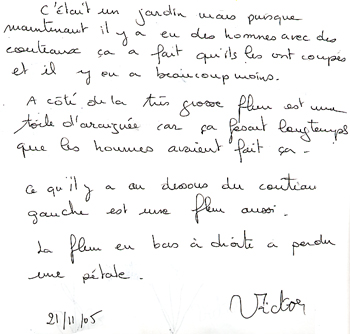 C'était un jardin mais puisque
maintenant il y a eu des hommes avec des
couteaux ça a fait qu'ils les ont coupés
et il y en a beaucoup moins.
A côté de la très grosse fleur est une
toile d'araignée car ça fesait longtemps
que les hommes avaient fait ça.
Ce qu'il y a au dessous du couteau
gauche est une fleur aussi.
La fleur en bas à droite a perdu
une pétale.
21/11/05 Victor